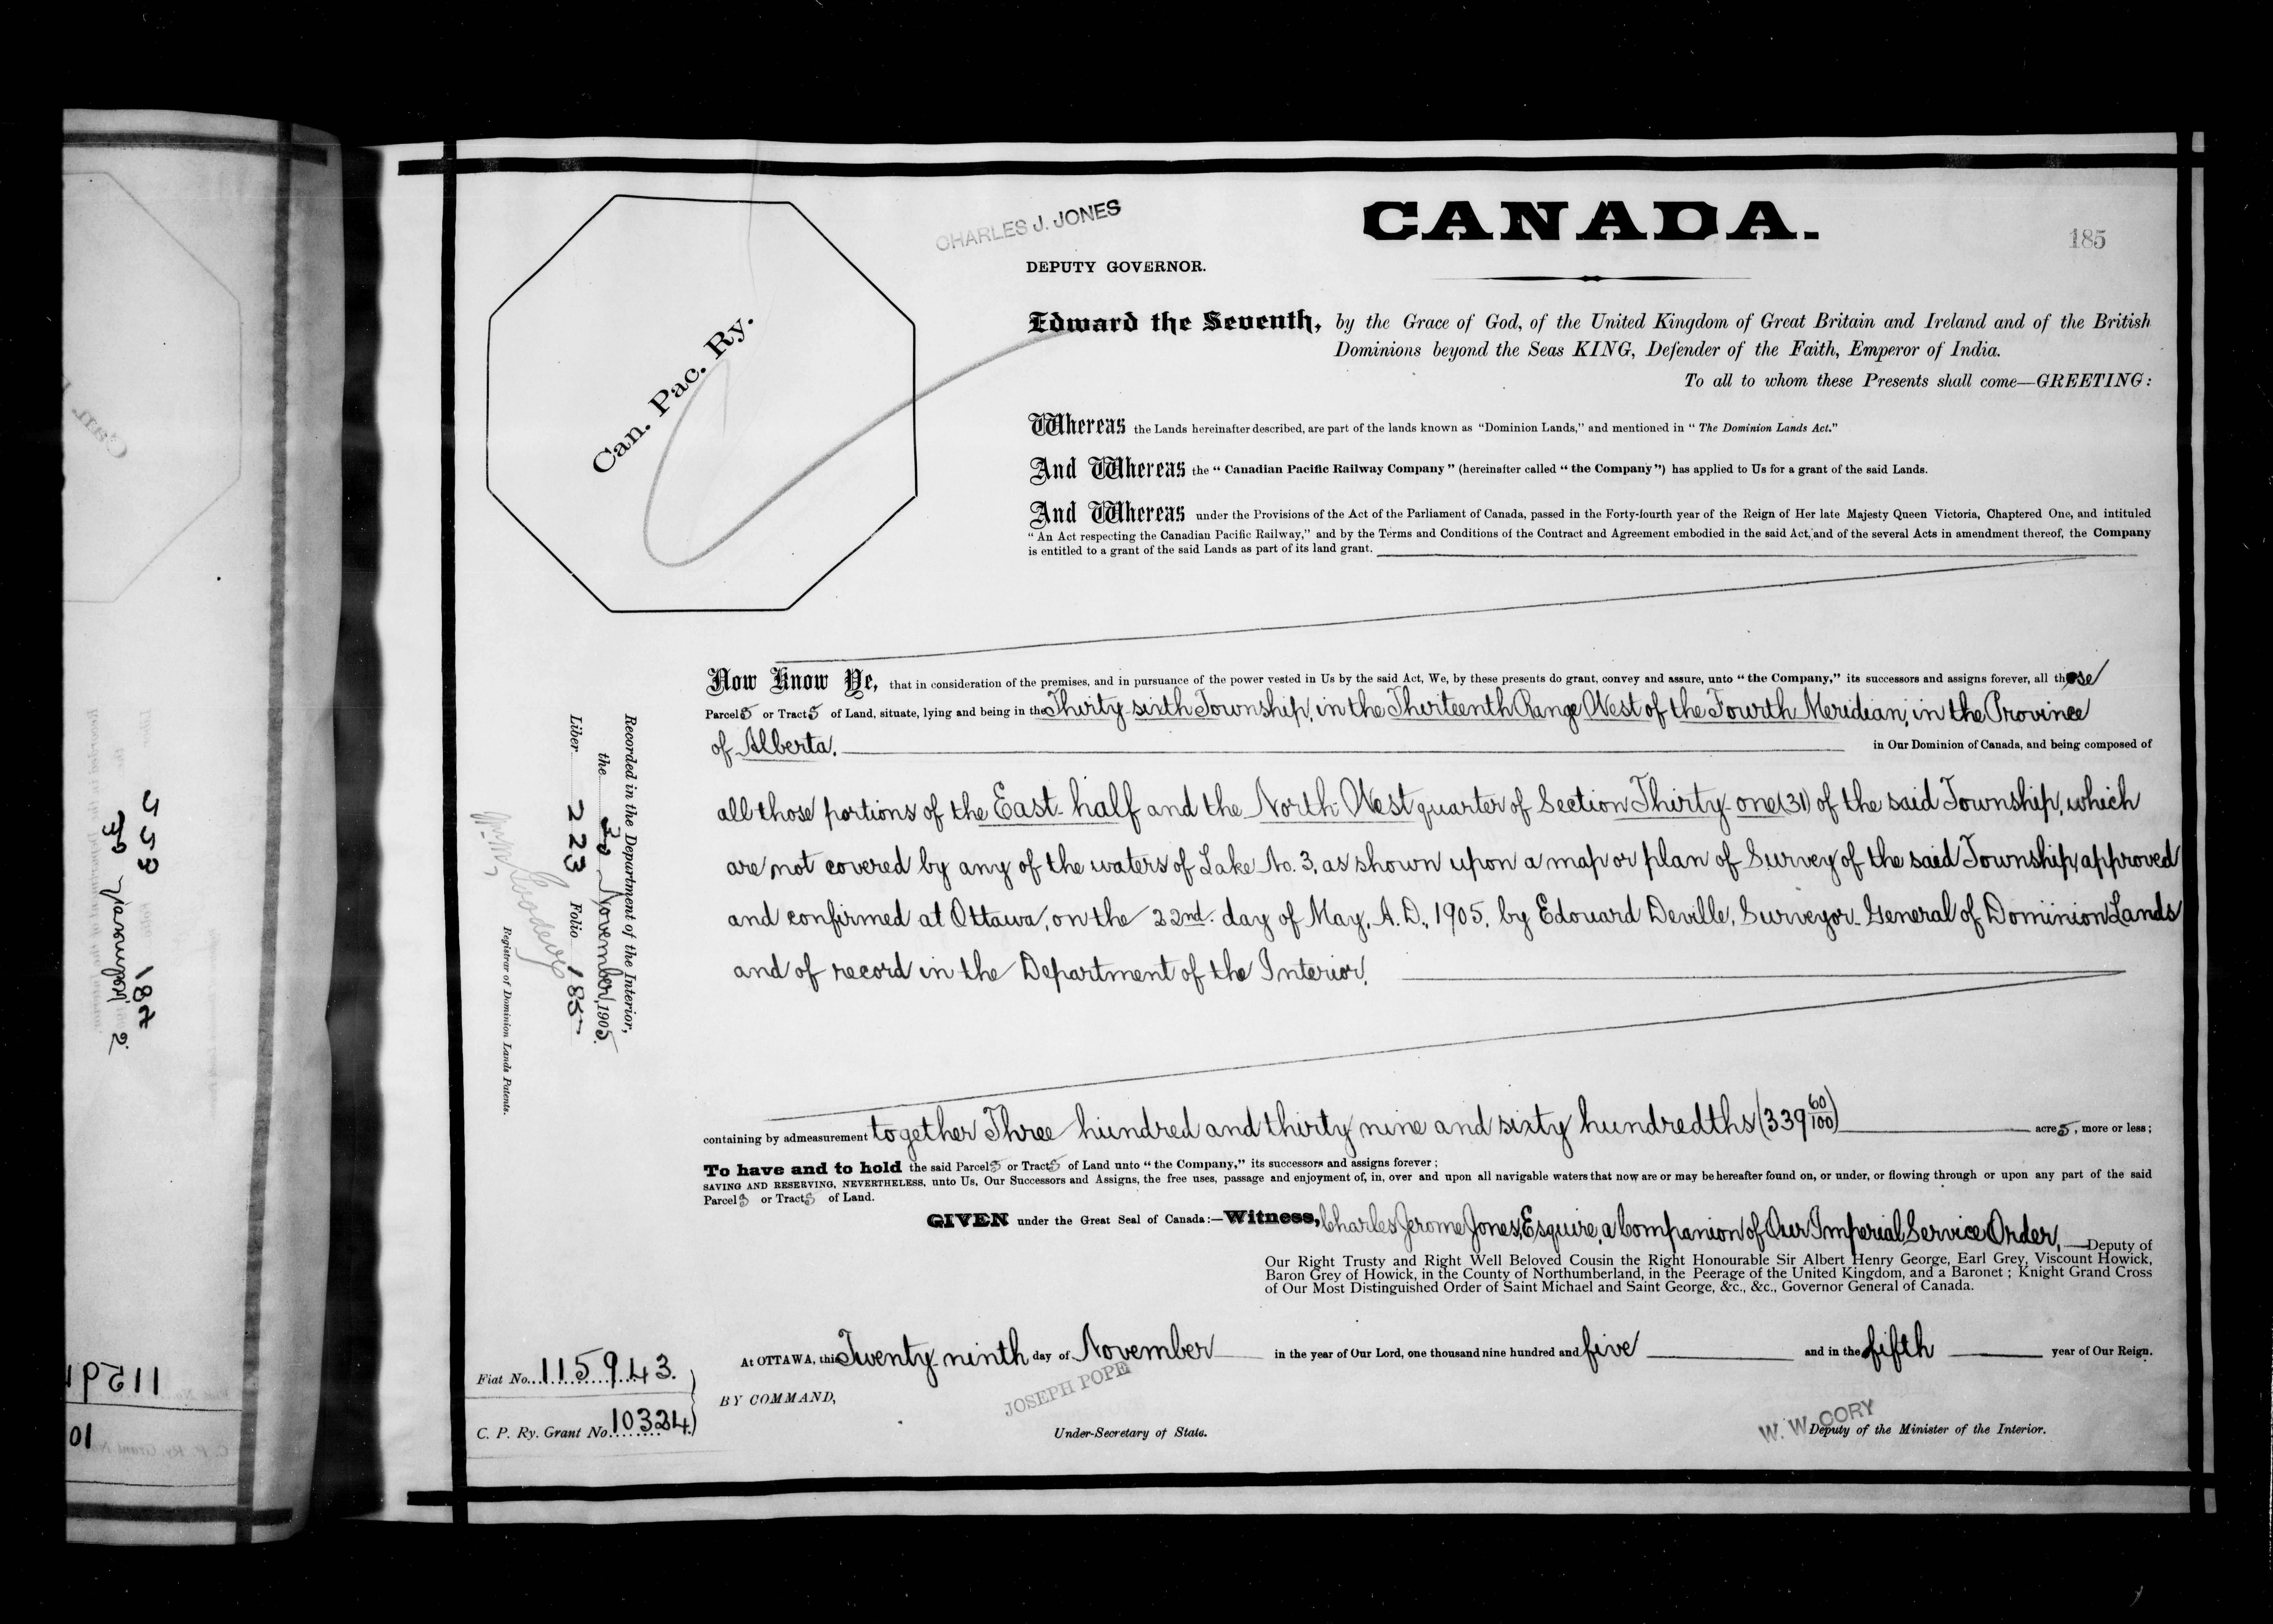 CHARLES J. JONES
CANADA.
185
DEPUTY GOVERNOR.
Can. Pac. Ry.
Edward the Seventh, by the Grace of God, of the United Kingdom of Great Britain and Ireland and of the British
Dominions beyond the Seas KING, Defender of the Faith, Emperor of India.
To all to whom these Presents shall come—GREETING:
Whereas the Lands hereinafter described, are part of the lands known as "Dominion Lands," and mentioned in "The Dominion Lands Act."
And Whereas the "Canadian Pacific Railway Company" (hereinafter called "the Company") has applied to Us for a grant of the said Lands.
And Whereas under the Provisions of the Act of the Parliament of Canada, passed in the Forty-fourth year of the Reign of Her late Majesty Queen Victoria, Chaptered One, and intituled
"An Act respecting the Canadian Pacific Railway," and by the Terms and Conditions of the Contract and Agreement embodied in the said Act, and of the several Acts in amendment thereof, the Company
is entitled to a grant of the said Lands as part of its land grant.
Now Know Ye, that in consideration of the premises, and in pursuance of the power vested in Us by the said Act, We, by these presents do grant, convey and assure, unto "the Company," its successors and assigns forever, all those
Parcels or Tracts of Land, situate, lying and being in the Thirty-sixth Township, in the Thirteenth Range West of the Fourth Meridian, in the Province
of Alberta. in Our Dominion of Canada, and being composed of
all those portions of the East-half and the North-West quarter of Section Thirty-one (31) of the said Township, which
are not covered by any of the waters of Lake No. 3, as shown upon a map or plan of Survey of the said Township, approved
and confirmed at Ottawa, on the 22nd. day of May, A.D., 1905, by Edouard Deville, Surveyor-General of Dominion Lands
and of record in the Department of the Interior.
containing by admeasurement together Three hundred and thirty nine and sixty hundredths (339 60/100) acres, more or less;
To have and to hold the said Parcels or Tracts of Land unto "the Company," its successors and assigns forever;
SAVING AND RESERVING, NEVERTHELESS, unto Us, Our Successors and Assigns, the free uses, passage and enjoyment of, in, over and upon all navigable waters that now are or may be hereafter found on, or under, or flowing through or upon any part of the said
Parcels or Tracts of Land.
GIVEN under the Great Seal of Canada:—Witness, Charles Jerome Jones, Esquire, a Companion of Our Imperial Service Order, Deputy of
Our Right Trusty and Right Well Beloved Cousin the Right Honourable Sir Albert Henry George, Earl Grey, Viscount Howick,
Baron Grey of Howick, in the County of Northumberland, in the Peerage of the United Kingdom, and a Baronet; Knight Grand Cross
of Our Most Distinguished Order of Saint Michael and Saint George, &c., &c., Governor General of Canada.
At OTTAWA, this Twenty-ninth day of November in the year of Our Lord, one thousand nine hundred and five and in the fifth year of Our Reign.
BY COMMAND,
JOSEPH POPE
Under-Secretary of State.
W. W. CORY
Deputy of the Minister of the Interior.
Fiat No. 115943.
C. P. Ry. Grant No. 10324.
Recorded in the Department of the Interior,
the 30 November, 1905.
Liber 223 Folio 185
Registrar of Dominion Lands Patents.